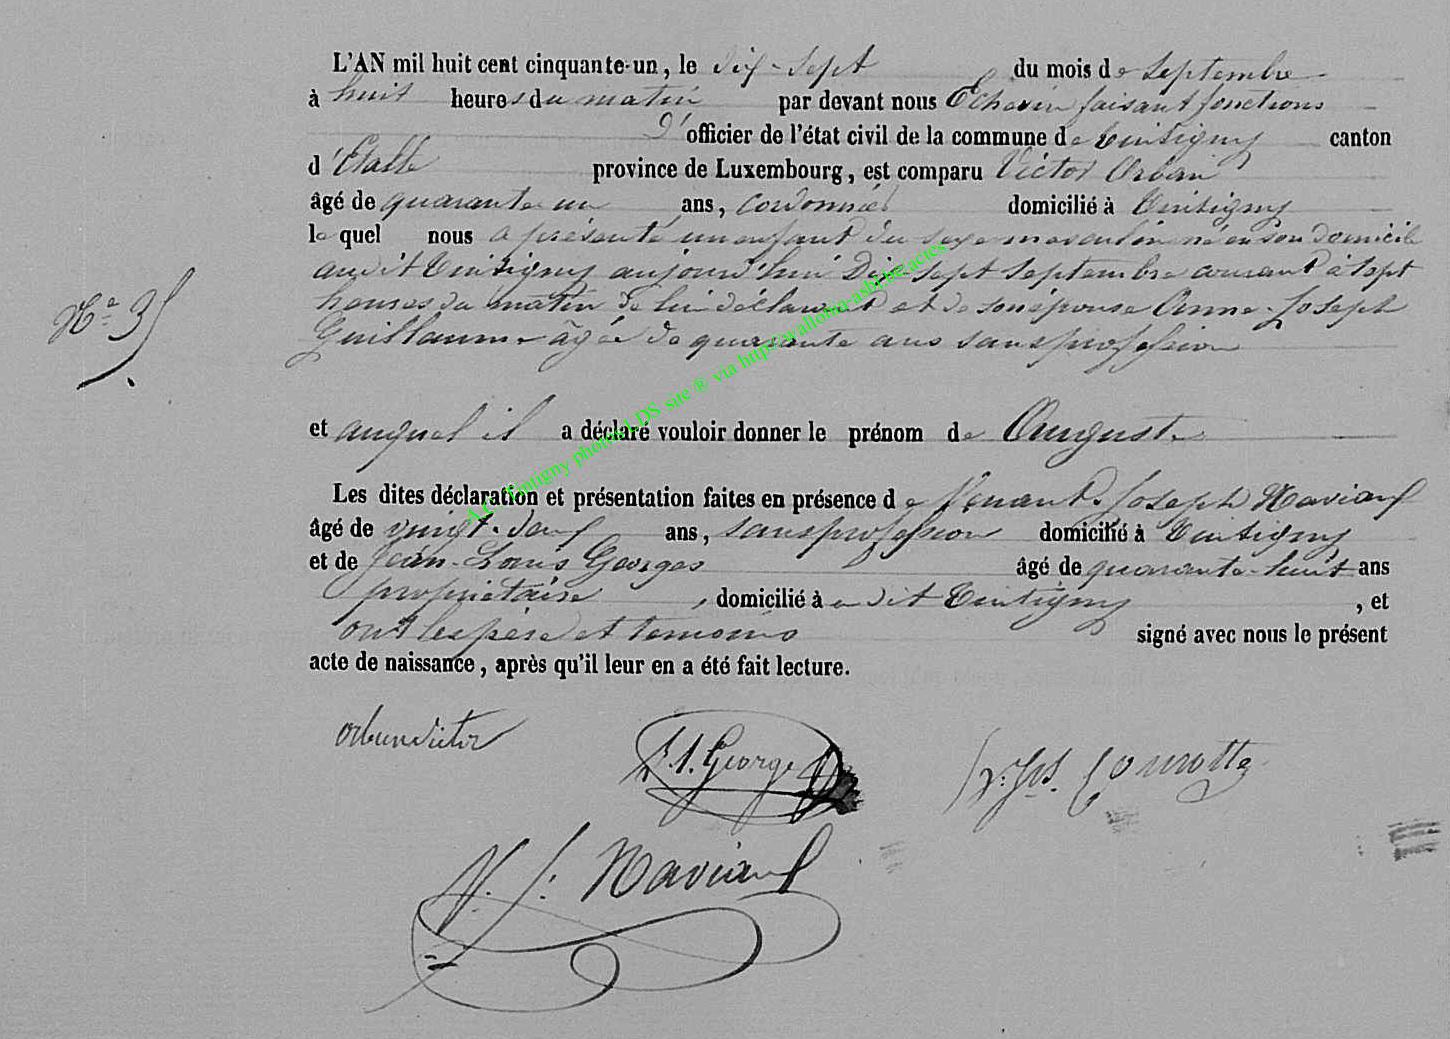 L'AN mil huit cent cinquante-un, le dix-sept du mois de Septembre
à huit heures du matin par devant nous Echevin faisant fonctions
d'officier de l'état civil de la commune de Tintigny canton
d'Etalle province de Luxembourg, est comparu Victor Orban
âgé de quarante un ans, cordonnier domicilié à Tintigny
lequel nous a présenté un enfant du sexe masculin né en son domicile
audit Tintigny aujourd'hui Dix Sept Septembre courant à sept
heures du matin de lui déclarant et de son épouse Anne-Joseph
N° 35.
Guillaume âgée de quarante ans sans profession
et auquel il a déclaré vouloir donner le prénom de Auguste
Les dites déclaration et présentation faites en présence de Joseph Naviaux
âgé de vingt-deux ans, sans profession domicilié à Tintigny
et de Jean-Louis Georges âgé de quarante-huit ans
propriétaire, domicilié à dit Tintigny, et
ont les père et temoins signé avec nous le présent
acte de naissance, après qu'il leur en a été fait lecture.
orban victor
George
N. J. Naviaux
A.C. Tintigny photos LDS site ® via http://wallonia-asbl.be/actes